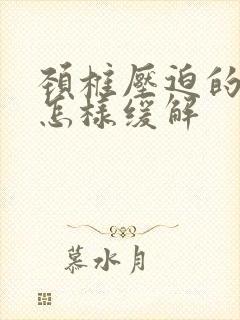 頸椎壓迫的
怎樣緩解
慕水月